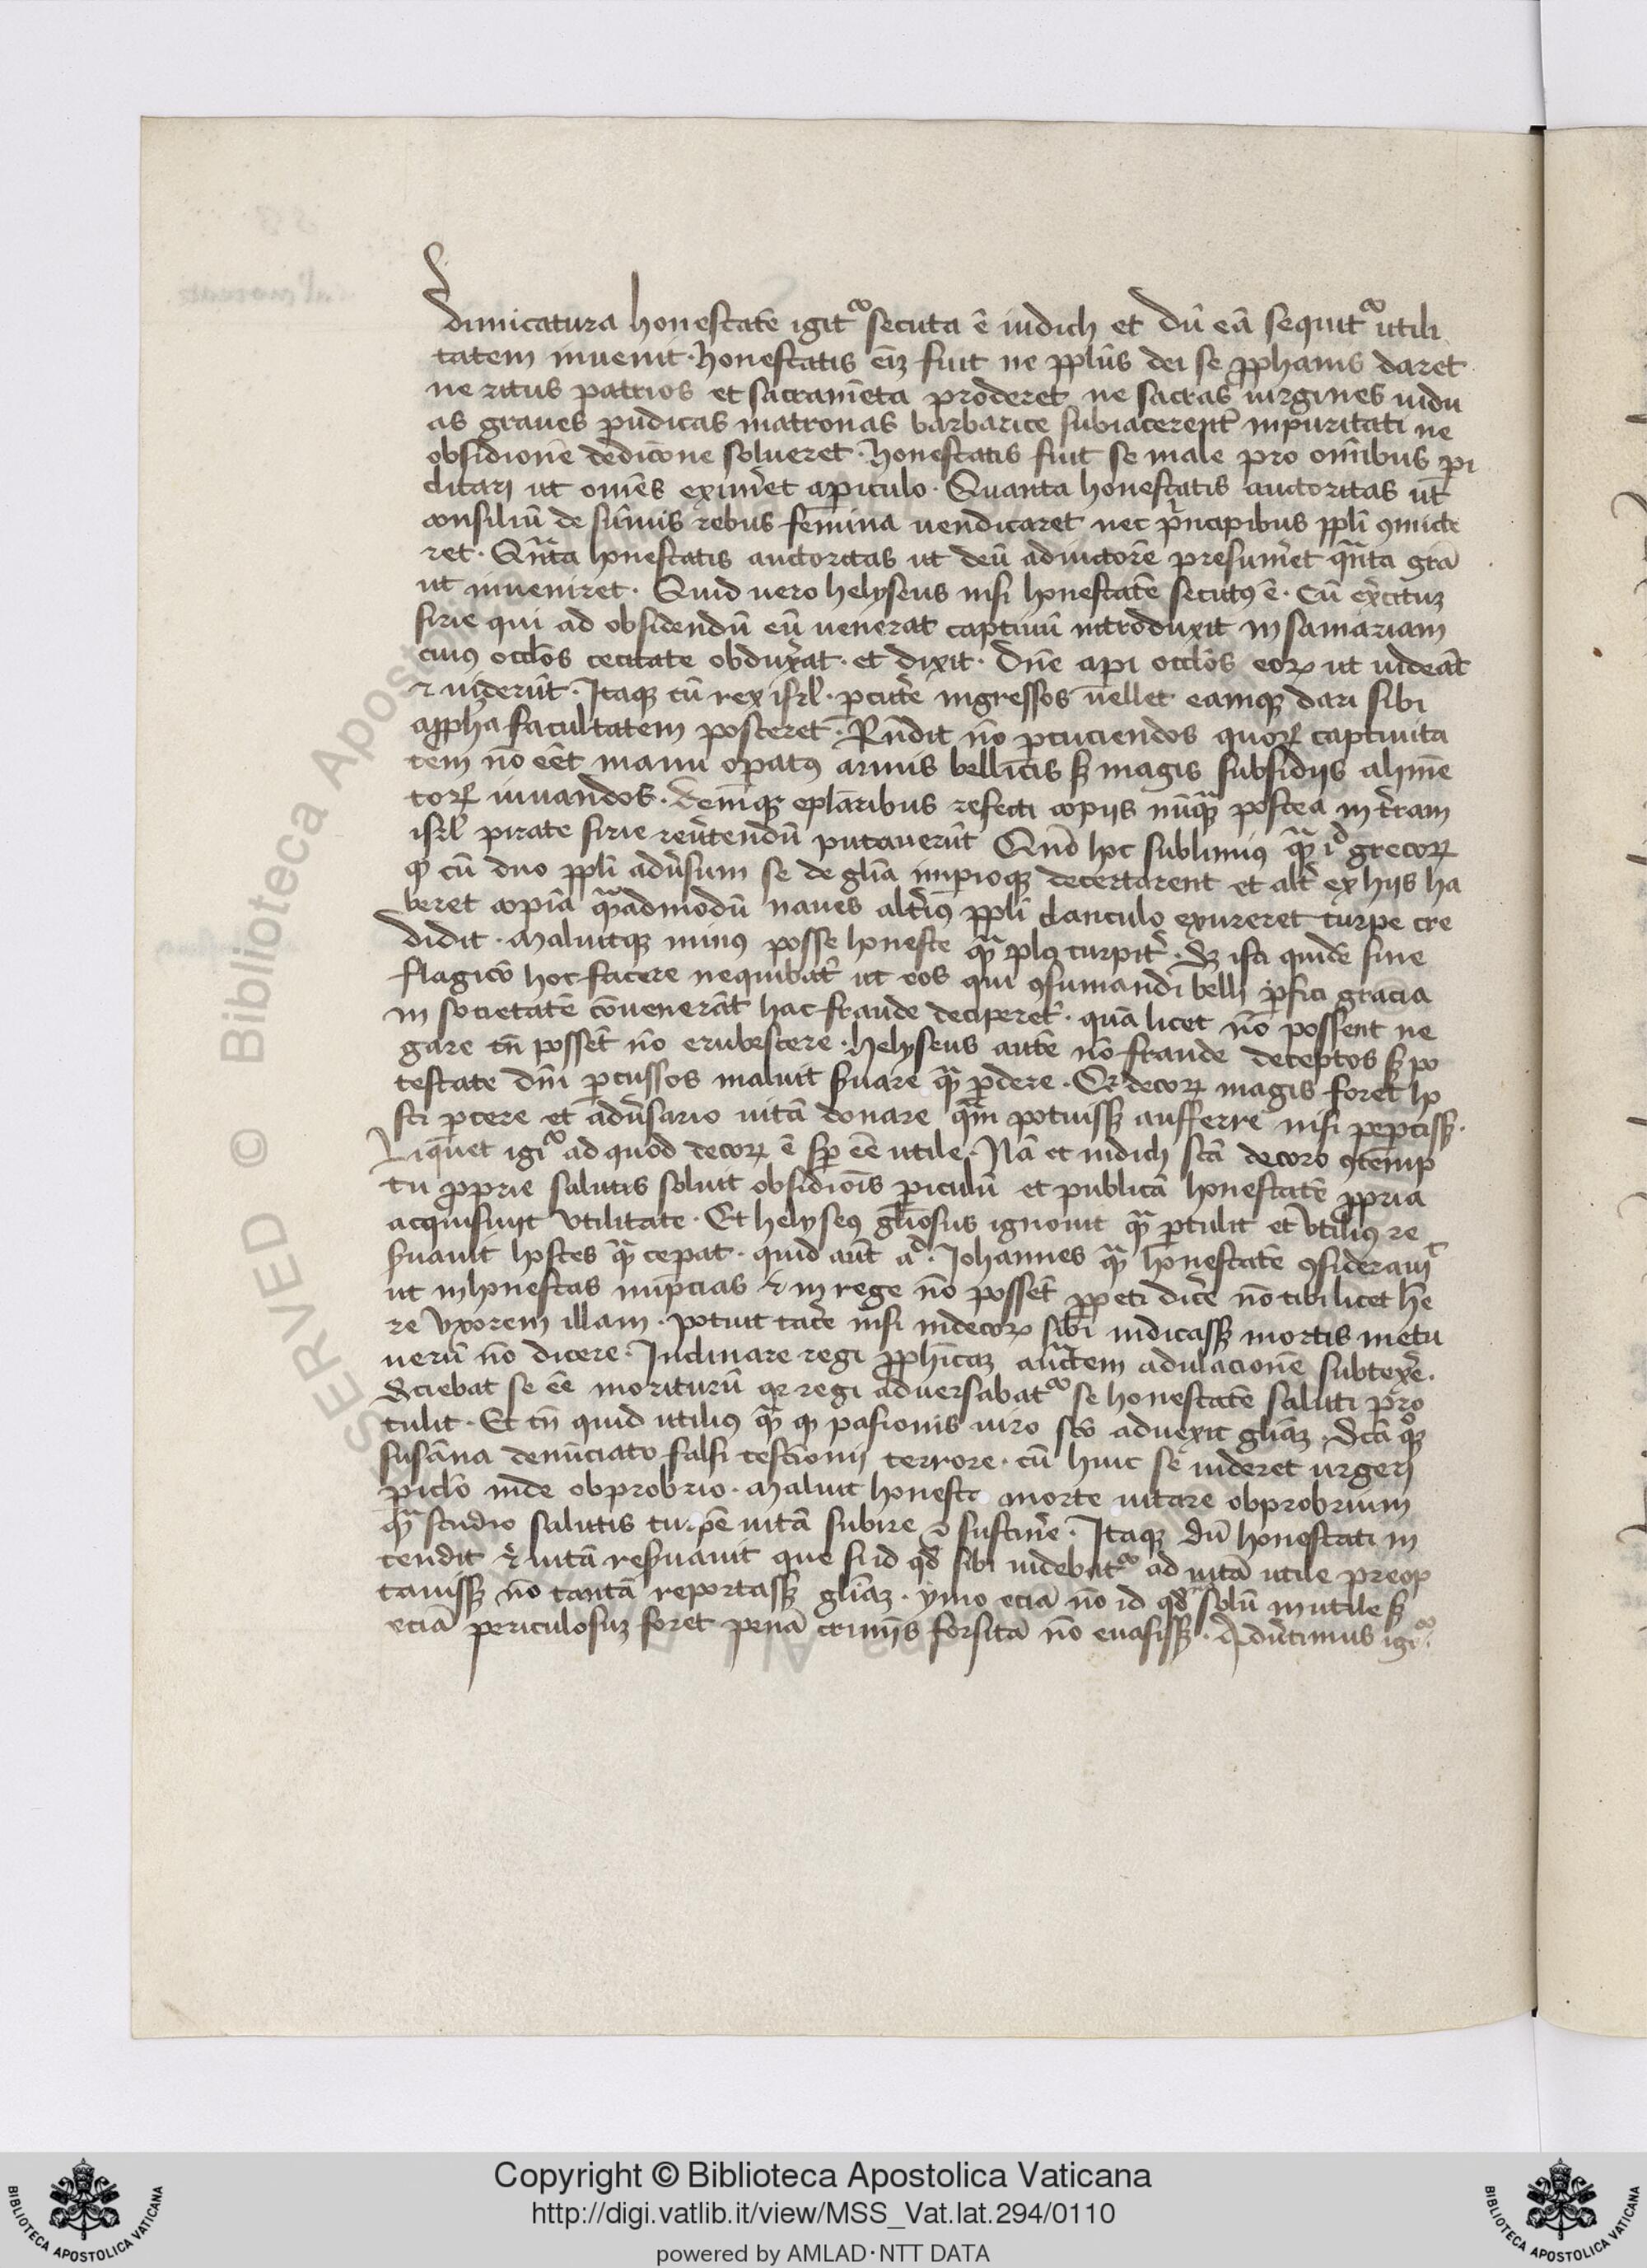 dimicatura honestatē igitᷣ secuta ē iudich et dū eā sequitᷣ utili
tatem inuenit · honestatis eīz fuit ne pplūs dei se pphanis daret
ne ritus patrios et sacramēta proderet ne sacras uirgines uidu
as graues pudicas matronas barbarice subiacerent inpuritati ne
obsidionē dedicōne solueret · honestatis fuit se male pro omībus pi
clitari ut omēs eximet apiculo · Quanta honestatis auctoritas ut
consiliū de sūmis rebus femina uendicaret nec pncipibus ppli ꝯmicte
ret · Qnta honestatis auctoritas ut deū adiutorē presumet qnta gra
ut inueniret · Quid uero helyseus nisi honestatē secutꝰ ē · Cū exercituz
sirie qui ad obsidendū eū uenerat captiuū introduxit in samariam
cuiꝰ occlos cecitate obduxat · et dixit · Dne api occlos eoꝝ ut uideāt
⁊ uiderūt · Itaqꝫ cū rex isrl · pcute ingressos uellet eamqꝫ dari sibi
appha facultatem posceret · Rndit nō pcuciendos quoꝝ captiuita
tem nō eēt manu opatꝰ armis bellicis sꝫ magis subsidijs alimē
toꝝ iuuandos · deniqꝫ eplaribus refecti copijs nūqꝫ postea in tram
isrl pirate sirie reutendū putauerūt Qnō hoc sublimiꝰ qꝫ id grecoꝝ
qꝫ cū duo ppli adusum se de glia impioqꝫ decertarent et alt ex hijs ha
beret copiā quadmodū naues altiꝰ ppli clanculo exureret turpe cre
didit · Maluitqꝫ minꝰ posse honeste qꝫ plꝰ turpit · Sꝫ isti quidē sine
flagicō hoc facere nequibāt ut eos qui ꝯsumandi belli pfici gracia
in societatē cōuenerāt hac fraude deciperet · quā licet nō possent ne
gare tn posset nō erubescere · Helyseus autē nō fraude deceptos sꝫ po
testate dni pcussos maluit suare qꝫ pdere · Qꝛ decoꝝ magis foret ho
sti pcere et adusario uitā donare qm potuissꝫ aufferre nisi pepcissꝫ ·
Liquet igiᷣ ad quod decoꝝ ē sp eē utile · Nā et iudich scā decoro ꝯtemp
tu pprie salutis soluit obsidiōis piculū et publicā honestatē ppria
acquisiuit utilitate · Et helyseꝰ gliosus ignouit qꝫ ptulit et utiliꝰ re
suauit hostes qꝫ cepat · quid aūt ad · Johannes qꝫ honestatē ꝯsiderauit
ut inhonestas nupcias ⁊ in rege nō posset ppeti dice nō tibi licet he
re uxorem illam · potuit tace nisi indecoꝝ sibi iudicassꝫ mortis metu
uerū nō dicere · Inclinare regi pphicaz auctem adulacionē subtexe ·
Sciebat se eē moriturū qꝛ regi aduersabatᷣ se honestatē saluti pro
tulit · Et tn quid utiliꝰ qꝫ qꝫ pasionis uiro scō aduexit gliaz · Scā qꝫ
susāna denūciato falsi testōnij terrore · cū hinc se uideret urgeri
piclo inde obprobrio · Maluit honesta morte uitare obprobrium
qꝫ studio salutis turpē uitā subire ⁊ sustine · Itaqꝫ dū honestati in
tendit ⁊ uitā resuauit que si id qd sibi uidebatᷣ ad uitā utile preop
tauissꝫ nō tantā reportassꝫ gliaz · ymo eciā nō id qd solū inutile sꝫ
eciā periculosuz foret penā criminis forsitā nō euasissꝫ · Aduertimus igiᷣ ·
Copyright © Biblioteca Apostolica Vaticana
http://digi.vatlib.it/view/MSS_Vat.lat.294/0110
powered by AMLAD·NTT DATA